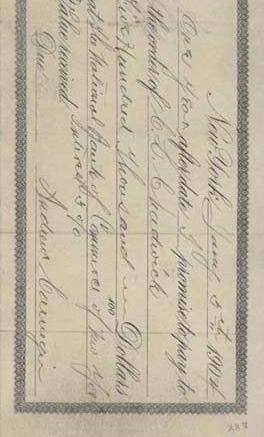 New York Jany 5th 1904
One year after date I promise to pay to
the order of C. L. Chadwick
Hundred Thousand no/100 Dollars
at the National Bank of Commerce of New York
Value received Interest 5%
Due Andrew Carnegie